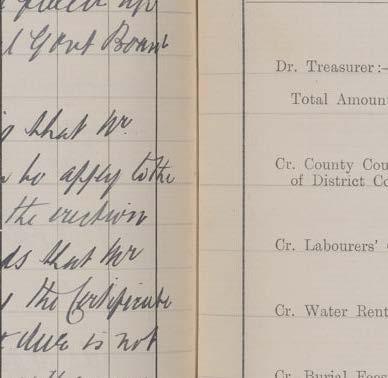 l Govt Board
that Mr
apply to the
the erection
ds that Mr
the Certificate
due is not
Dr. Treasurer :—
Total Amoun
Cr. County Cou
of District Co
Cr. Labourers'
Cr. Water Rent
Cr. Burial Fees